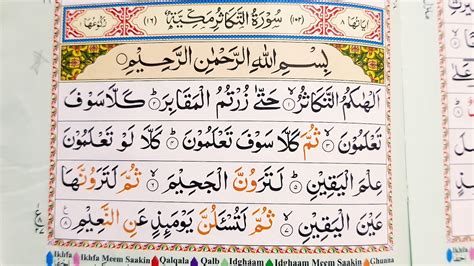 اٰیَاتُهَا ٨ (١٠٢) سُوْرَةُ التَّكَاثُرِ مَكِّيَّةٌ (١٦) رُكُوْعُهَا ١
بِسْمِ اللّٰهِ الرَّحْمٰنِ الرَّحِيْمِ
اَلْهٰىكُمُ التَّكَاثُرُ ۙ١ حَتّٰى زُرْتُمُ الْمَقَابِرَ ؕ٢ كَلَّا سَوْفَ
تَعْلَمُوْنَ ۙ٣ ثُمَّ كَلَّا سَوْفَ تَعْلَمُوْنَ ؕ٤ كَلَّا لَوْ تَعْلَمُوْنَ
عِلْمَ الْيَقِيْنِ ؕ٥ لَتَرَوُنَّ الْجَحِيْمَ ۙ٦ ثُمَّ لَتَرَوُنَّهَا
عَيْنَ الْيَقِيْنِ ۙ٧ ثُمَّ لَتُسْئَلُنَّ يَوْمَئِذٍ عَنِ النَّعِيْمِ ٨
Ikhfa Ikhfa Meem Saakin Qalqala Qalb Idghaam Idghaam Meem Saakin Ghunna